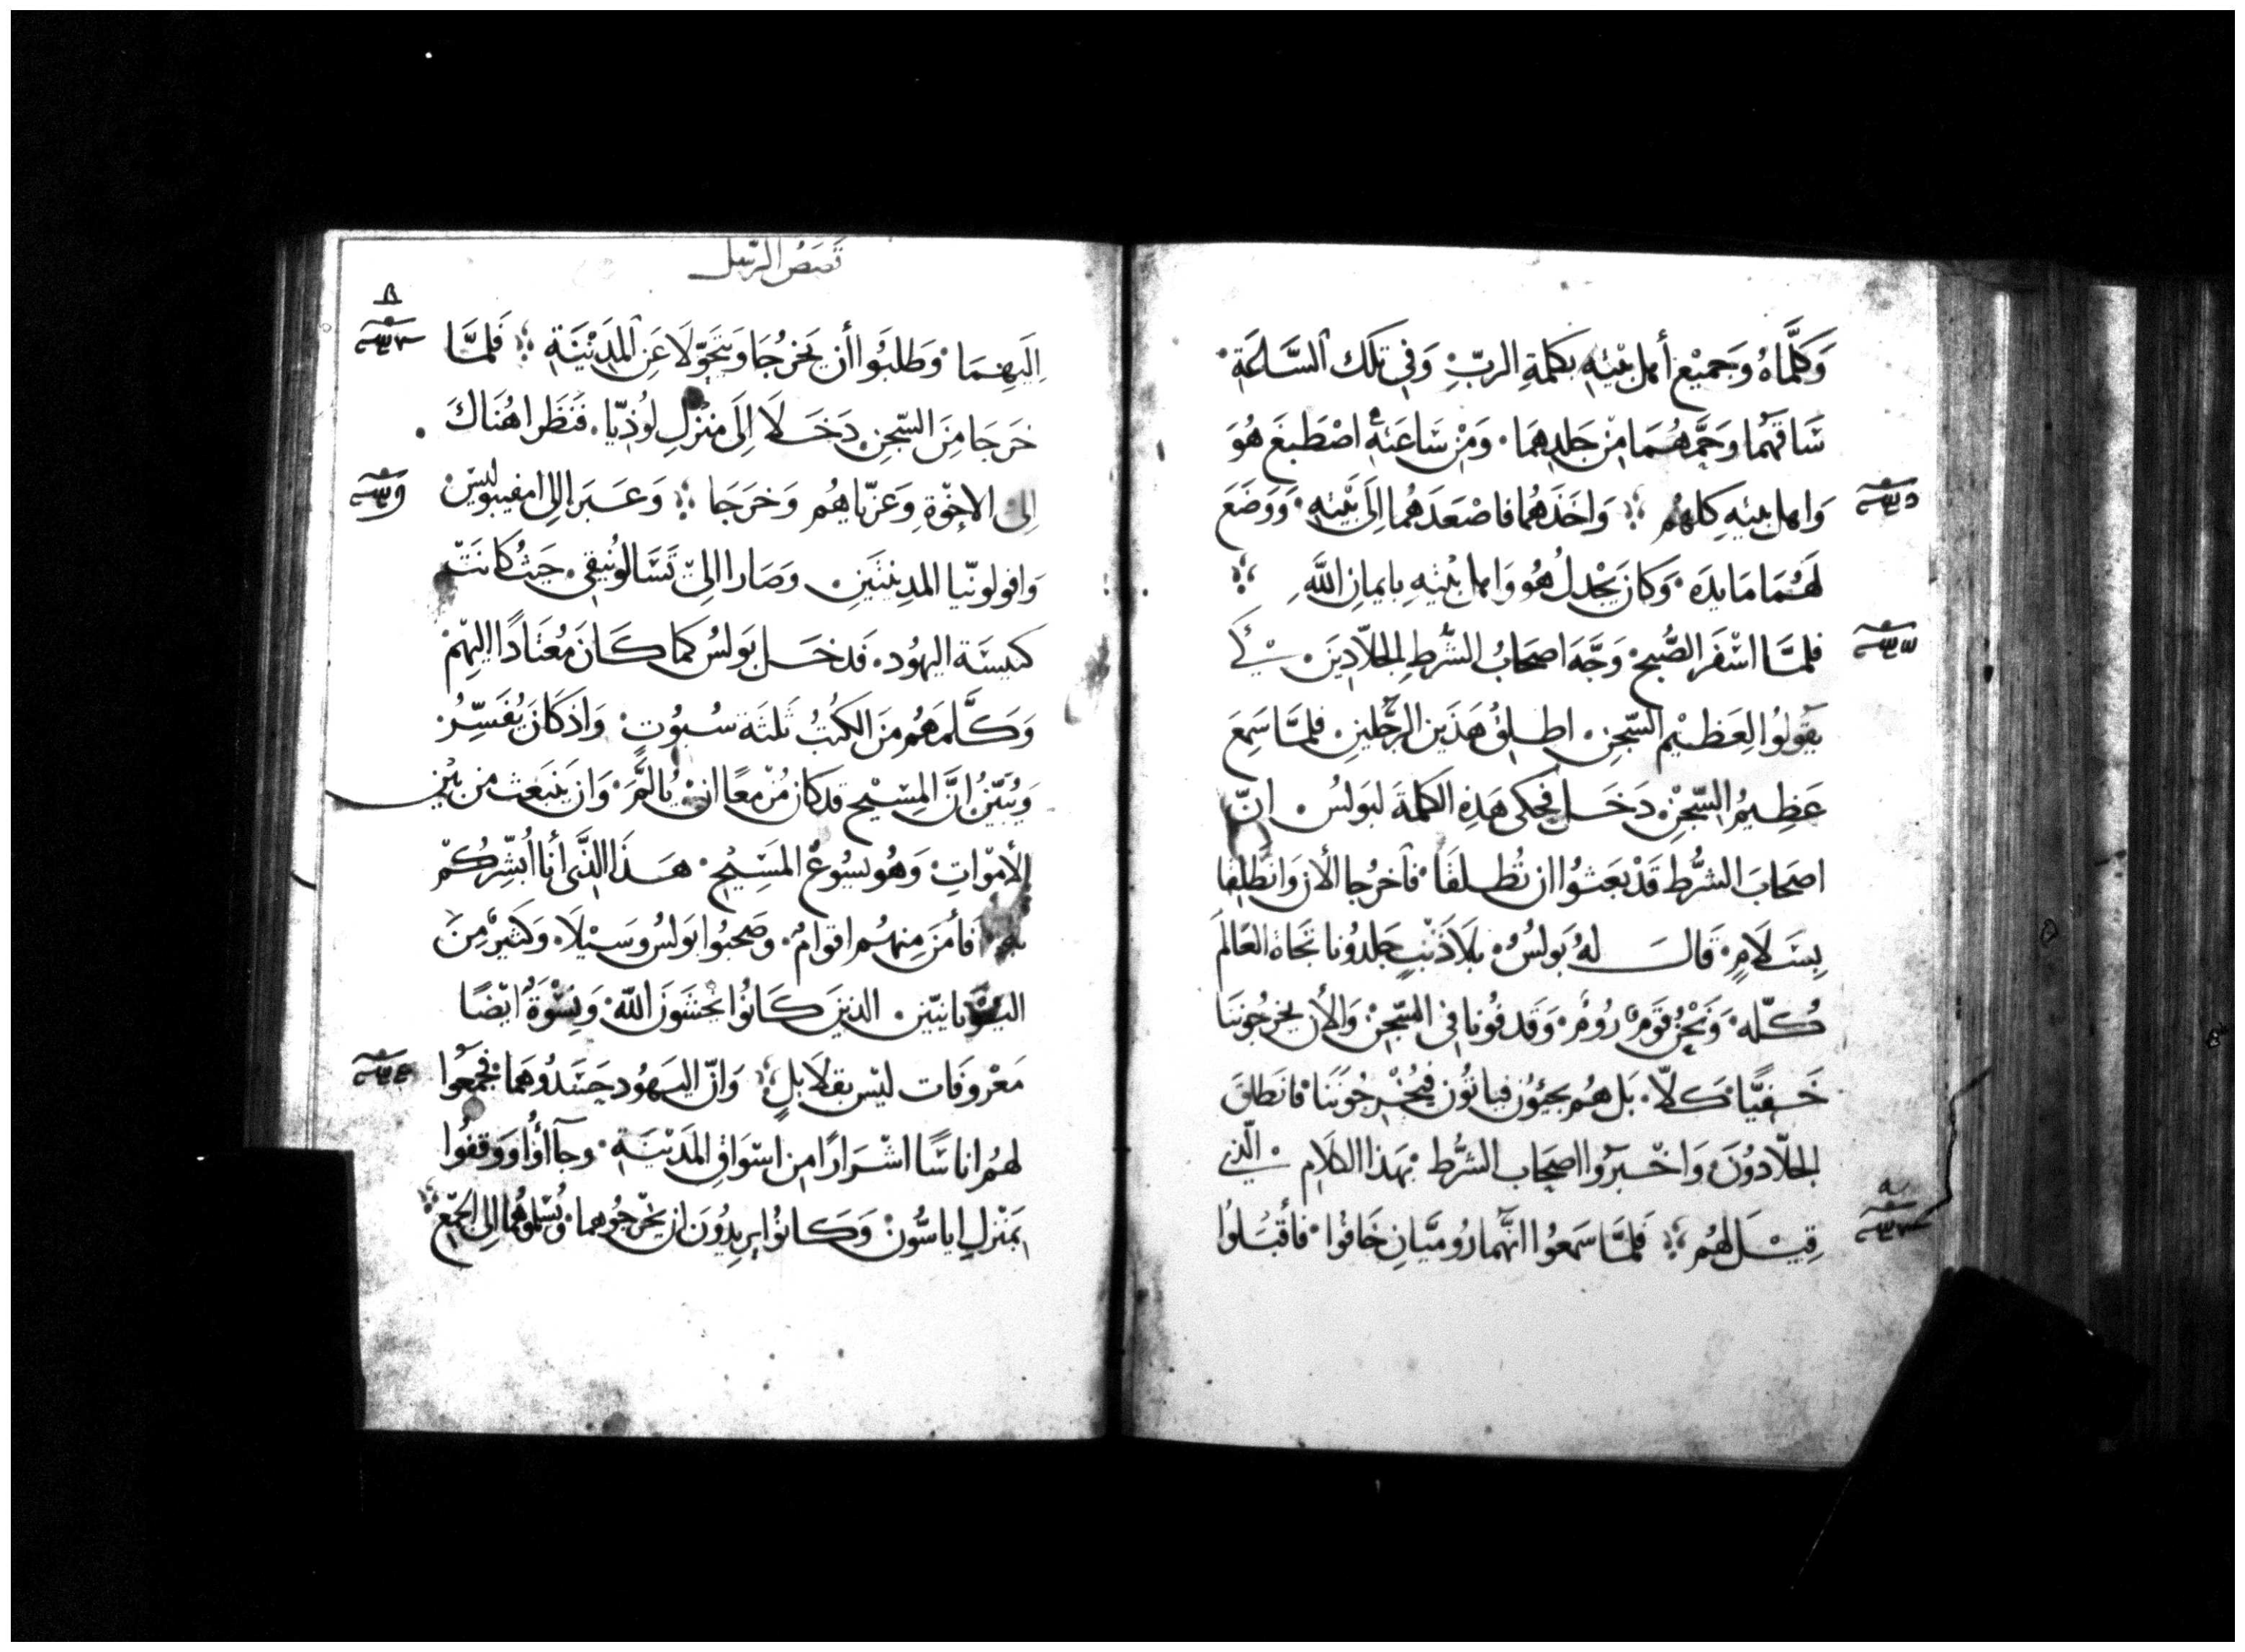 وَكَلَّمَاهُ وَجَمِيْع أهل بَيْتِهِ بكلمةِ الربِّ وَفي تلكَ السَّاعَةِ
سَاقهُما وَحمَّمهُمَا مِنْ جَلدِهمَا وَمِنْ سَاعَتهِ اصْطَبغَ هُوَ
وَاهل بيتهِ كلهُم وَاخَذهُما فاصْعَدهُما الِىَ بَيْتهِ وَوَضَعَ
لَهُمَا مَايدَه وَكانَ يَجْدلُ هُو وَاهل بَيْتهِ بايمانِ اللَّهِ
فلمَّا اسْفَر الصُّبحْ وَجَّهَ اصحَابُ الشُّرطِ الجلاّدِينَ كَي
يقولوُا لِعَظيْم السِّجنِ اطلِقْ هَذَين الرجُلينِ فلمَّا سَمِعَ
عَظِيمُ السِّجنِ دَخَل فحكى هَذِه الكلمةَ لبَولسُ انّ
اصحَابَ الشُّرط قَدْ بَعَثوُا ان تُطلقَا فآخرُجا الأن وَانطَلِقا
بِسَلامٍ قَال لهُ بَولسُ بِلاَ ذَنْبٍ جَلدوُنا تجَاهَ العَالَم
كُلّه وَنحْنُ قوَم رُومْ وَقدفوُنا في السِّجنْ وَالأن يخرجوُننَا
خَفِيًّا كَلاّ بَل هُم يجيؤن فياتُون فيُخْرجُونَنَا فانطَلقَ
الجلاّدوُنَ وَاخْبَروا اصحَاب الشُّرط بهَذا الكلامِ الّذي
قِيْلَ لهُم فَلمَّا سَمعوُا انَّهُما رُوميَّانِ خَافوُا فأقْبَلوُا
قصَصُ الرّسل
اليَهِمَا وَطلبَوا أن يَخرجُا وَيتحَوّلَا عَنِ المَدِيْنَةِ فَلمَّا
خَرجَا مِنَ السّجنِ دَخَلا الىَ مَنْزلِ لوُذيّا فنَظَرا هُنَاكَ
الىْ الاخوّةِ وَعَزّياهُم وَخرَجَا وَعَبَرا الى امفيبوليسْ
وَافولونيّا المدِينَتَينِ وَصَارا الىْ تَسَالوُنيقي حَيثُ كانَتْ
كنيسَة اليهُود فَدخَل بَولسُ كما كَانَ مُعْتادًا اليهِمْ
وَكَلَّمهُم مِنَ الكتُبْ ثَلثَة سُبُوتٍ وَاذ كانَ يُفسِّرُ
وَيُبيّنُ انَّ المِسْيْح قدكانَ مُزْمعًا انْ يَألَّمَ وَان يَنبَعث من بَيْن
الأموَاتِ وَهُو يسُوعْ المَسِيْح هَذا الذَّى أنا أبشّركُمْ
بهِ فأمَنَ مِنهُم اقوامُ وصَحبوُا بَولسُ وَسَيْلَا وَكثيرُ مِنَ
اليوُنانيّين الذينَ كَانوُا يخشَونَ اللّهَ وَنِسْوَةُ ايْضًا
مَعْروفَات ليْس بقلَايلٍ وَانّ اليَهُود حَسَدُوهمَا فجمَعوُا
لهُم اناسًا اشْرَارًا مِن اسْوَاقِ المَدْينَةِ وجآاؤُا وَوقفوُا
بمَنْزلِ اياسُّون وَكَانوُا يريدُونَ ان يخْرجوُهما وَيُسْلموُهُما الى الجمْعِ